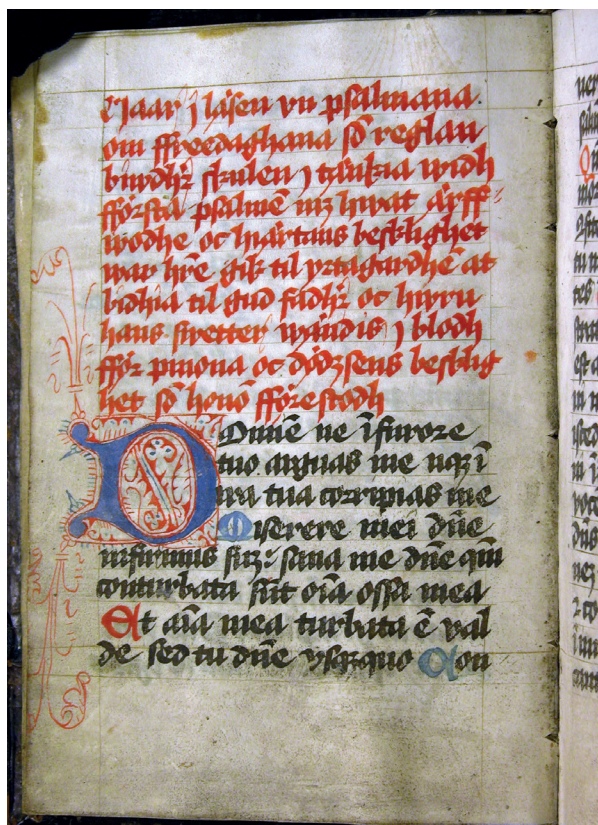 Naar j läsen vn psalmana
om ffreedaghana sō reglan
biwdhr skulen j tänkia widh
fförsta psalmē mz hwat ärff
wodhe oc hiärtans besklighet
war hrē gik til yrtagardhē at
bidhia til gud fadhr oc hwru
hans swetter wändis j blodh
fför pinona oc dödzsens besklig
het sō honō fföre stodh
Domē ne ī furore
tuo arguas me nqz ī
ira tua corripias me
Miserere mei dn̄e
infirmus suz sana me dn̄e qm̄
conturbata sūt oīa ossa mea
Et aīa mea turbata ē val
de sed tu dn̄e vsqzquo Con